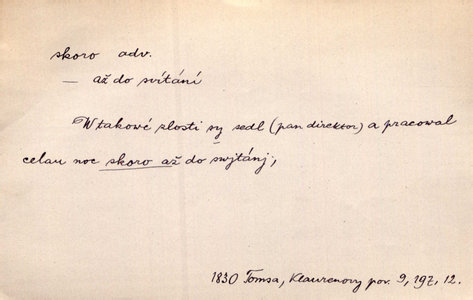 skoro adv.
— až do svítání
W takowé zlosti sy sedl (pan direktor) a pracowal
celau noc skoro až do swjtánj;
1830 Tomsa, Klaurenovy pov. 9, 197, 12.